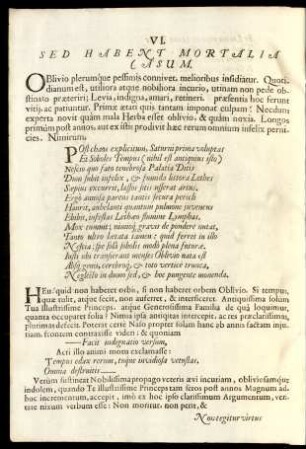 VI.
SED HABENT MORTALIA
CASUM.
OBlivio plerumque pessimis connivet, melioribus insidiatur. Quoti-
dianum est, utiliora atque nobiliora incurio, utinam non pede ob-
stinatio præteriri; Levia, indigna, amari, retineri. præsentis hoc ferunt
vitij, ac patiuntur. Primæ ætati quis tantam imponat culpam? Necdum
experta novit quàm mala Herba esset oblivio, & quàm noxia. Longos
primùm post annos, aut ex isthi prodivit hæc rerum omnium infelix perni-
cies. Nimirum
POst chaos explicitum, Saturni prima voluptas
Et Soboles Tempus (nihil est antiquius isto)
Nescio quo fato tenebrosa Palatia Ditis
Dum subit infelix, & fumida littora Lethes
Sæpius excurrit, lassus sitis isserat artus,
Ergò avidis parens tantis secura periclis
Haurit, anhelanti quantum pulmone
Ebibit, infestas Lethæo flumine Lymphas,
Mox tumuit; nimioque gravis de pondere nutat,
Tanto ultro laxata tamen: quid ferret in illo
Nescia: spe falli subolis modò plena futuræ.
Iusti ubi transierant menses Oblivio nata est
Absque genis, cerebroque, & toto vertice trunca,
Neglectis in quam sed, & hoc pungente movenda.
HEu! quid non haberet orbis, si non haberet orbem Oblivio. Si tempus,
quæ tulit, atque fecit, non auferret, & interficeret. Antiquissima solum
Tua Illustrissime Princeps, atque Generosissima Familia de qua loquimur,
quanta occuparet folia? Nimia ipsa antiquitas intercepit, ac res præclarissimas,
plurimas defecit. Poterat certè Naso propter solam hanc ob annos factam injuriam,
stantem contrascisse videri: & quoniam
—— Facit indignatio versum,
Acti illo animi motu exclamasse:
Tempus edax rerum, tuque invidiosa vetustas,
Omnia destruitis ——
Verùm sustineat Nobilissima propago veteris ævi incuriam, obliviosumque
indolem, quando Te Illustrissime Princeps tam seros post annos Magnum ad-
hoc incrementum, accepit, uno ex hoc ipso clarissimum Argumentum, ver-
tere nixum verbum esse: Non moritur, non perit, &
Nos tegitur virtus